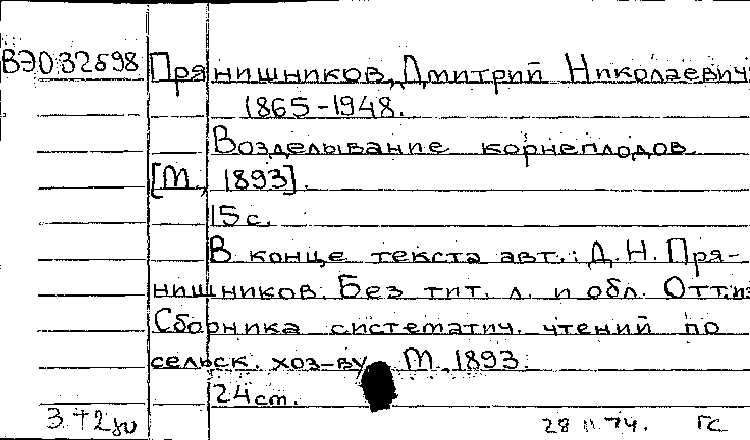 ВЭ032598 Прянишников, Дмитрий Николаевич
1865-1948.
Возделывание корнеплодов.
[М., 1893].
15 с.
В конце текста авт.: Д. Н. Пря-
нишников. Без тит. л. и обл. Отт. из
Сборника систематич. чтений по
сельск. хоз-ву М., 1893.
24 cm.
28 11 74. ГС